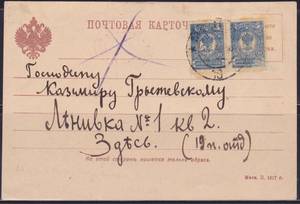 ПОЧТОВАЯ КАРТОЧКА
Господину
Казимиру Гржетевскому
Лѣнивка № 1 кв 2.
Здѣсь. (19 п. отд)
На этой сторонѣ пишется только адресъ.